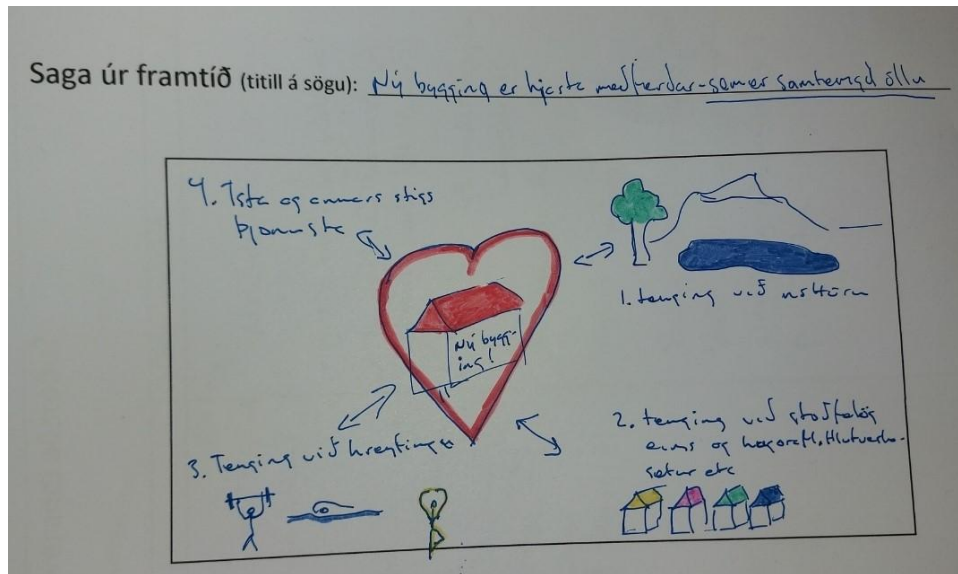 Saga úr framtíð (titill á sögu): Ný bygging er hjarta meðferdar - sem er samtengd öllu
4. 1sta og annars stigs
þjonusta
1. tenging við nátturu
Ný bygg-
ing!
2. tenging við stoðfelög
eins og hugarafl, Hlutverka-
setur etc
3. Tenging við hreyfingu